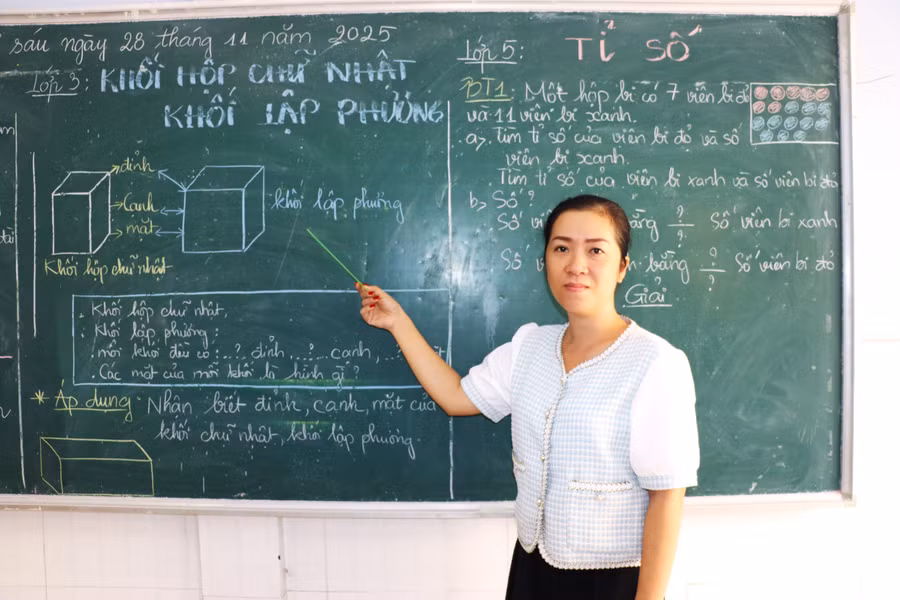 sáu ngày 28 tháng 11 năm 2025
Lớp 3: KHỐI HỘP CHỮ NHẬT
KHỐI LẬP PHƯƠNG
đỉnh
Cạnh
mặt
khối lập phương
Khối hộp chữ nhật
. Khối hộp chữ nhật.
. Khối lập phương:
. mỗi khối đều có : ..?.. đỉnh, ..?.. cạnh, ..?
. Các mặt của mỗi khối là hình gì ?
* Áp dụng: Nhận biết đỉnh, cạnh, mặt của
khối chữ nhật, khối lập phương.
Lớp 5: TỈ SỐ
BT1: Một hộp bi có 7 viên bi đỏ
và 11 viên bi xanh.
a>. Tìm tỉ số của viên bi đỏ và số
viên bi xanh.
. Tìm tỉ số của viên bi xanh và số viên bi đỏ
b> Số ?
Số bằng ?/? Số viên bi xanh
Số bằng ?/? Số viên bi đỏ
Giải